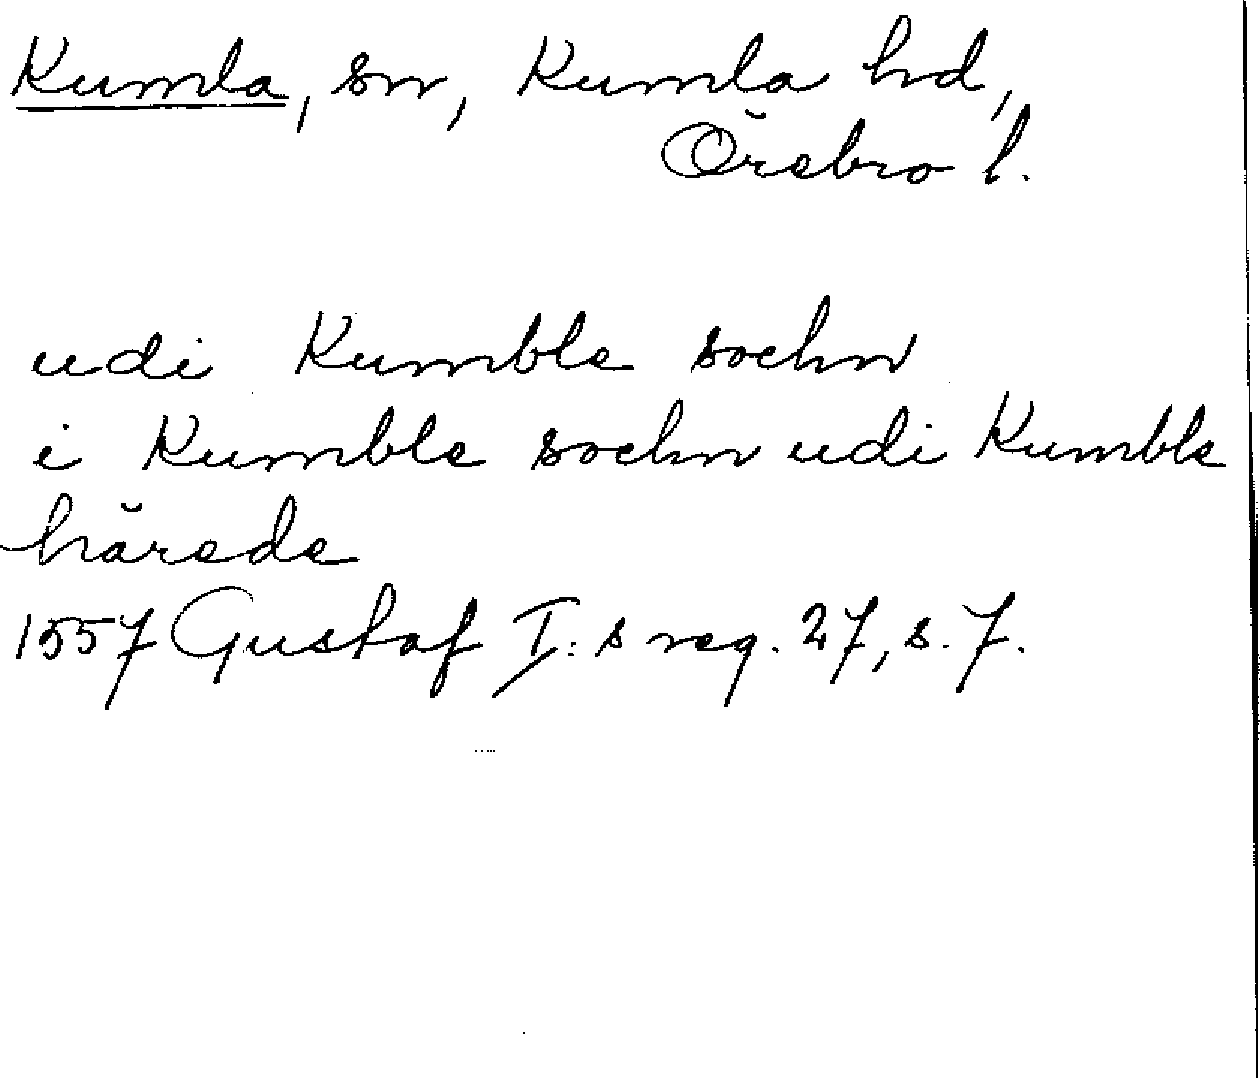 Kumla, sn, Kumla hd,
Örebro l.
udi Kumble sochn
i Kumble sochn udi Kumble
härede
1557 Gustaf I:s reg. 27, s. 7.